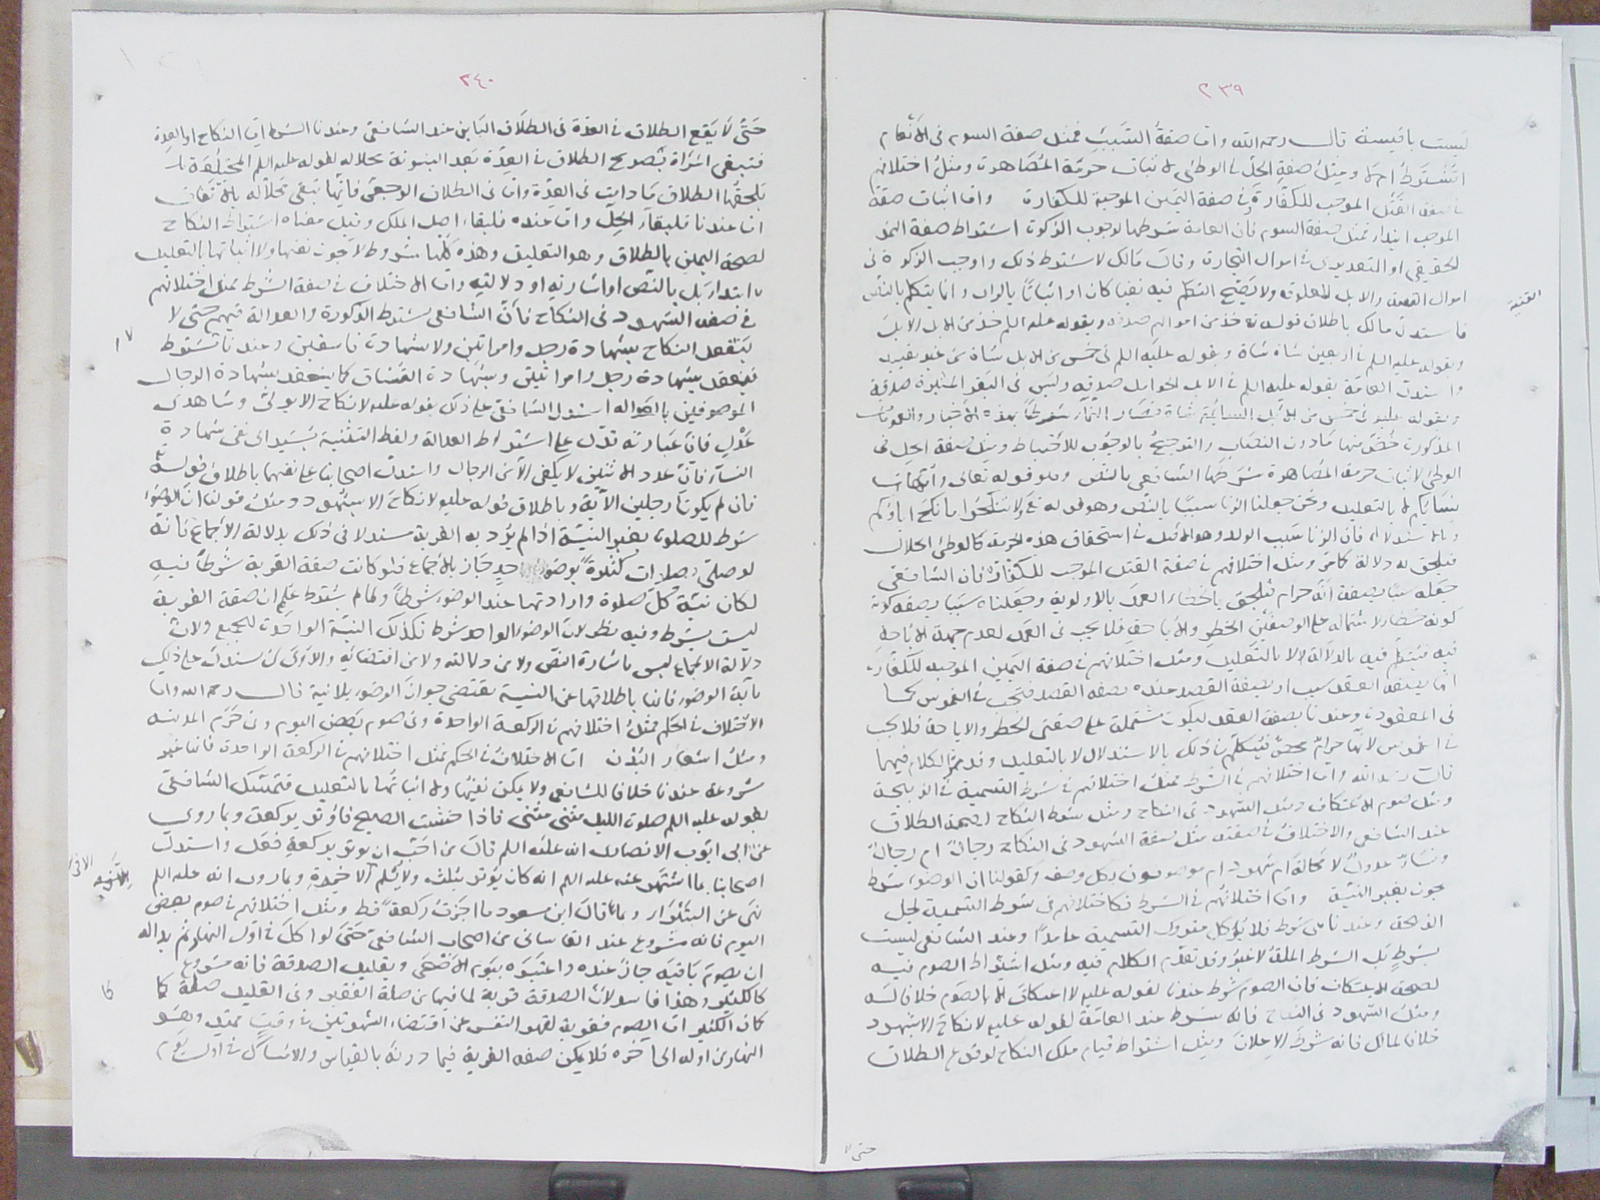 ٢٣٩
ليست بأقيسة قال رحمه الله واما صفة السبب فمثل صفة السوم فى الانعام
اتشترط ام لا ومثل صفة الحل فى الوطئ لاثبات حرمة المصاهرة ومثل اختلافهم
فى صفة القتل الموجب للكفارة وفى صفة اليمين الموجبة للكفارة واما اثبات صفة
الموجب ابتداء فمثل صفة السوم فان العامة شرطها لوجوب الزكوة اشتراط صفة النمو
الحقيقى او التقديرى فى اموال التجارة وقال مالك لا يشترط ذلك واوجب الزكوة فى
اموال القنية والابل المعلوفة ولا يصح التكلم فيه نفيا كان او اثباتا بالراى وانما يتكلم بالنص
فاستدل مالك باطلاق قوله تع خذ من اموالهم صدقة وبقوله عليه السلم خذ من الابل الابل
وبقوله عليه السلم فى اربعين شاة شاة وبقوله عليه السلم فى خمس من الابل شاة من غير تقييد
واستدل العامة بقوله عليه السلم فى الابل الحوامل صدقة وليس فى البقر المثيرة صدقة
وبقوله عليه فى خمس من الابل السائمة شاة فصار النماء شرطا بهذه الاخبار والعمومات
المذكورة خص منها ما دون النصاب والترجيح بالوجوب للاحتياط ومثل صفة الحل فى
الوطئ لاثبات حرمة المصاهرة شرطها الشافعى بالنص وهو قوله تعالى وامهات
نسائكم لا بالتعليل ونحن جعلنا الزنا سببا بالنص وهو قوله تع ولا تنكحوا ما نكح اباؤكم
وبالاستدلال فان الزنا سبب الولد وهو الاصل فى استحقاق هذه الحرمة كالوطئ الحلال
فيلحق به دلالة كامر ومثل اختلافهم فى صفة القتل الموجب للكفارة فان الشافعى
جعله سببا بصفة انه حرام فيلحق بالخطاء العمد بالاولوية وجعلناه سببا بصفة كونه
كونه خطاء لاشتماله على الوصفين الحظر والاباحة فلا يجب فى العمد لعدم جهة الاباحة
فيه فيتكلم فيه بالدلالة لا بالتعليل ومثل اختلافهم فى صفة اليمين الموجبة للكفارة
انها بصفة العقد سبب او بصفة القصد عنده بصفة القصد فتجب فى الغموس كما
فى المعقودة وعندنا بصفة العقد ليكون مشتملة على صفتى الحظر والاباحة فلا يجب
فى الغموس لانها حرام محض فيتكلم فى ذلك بالاستدلال لا بالتعليل وقد مر الكلام فيها
قال رحمه الله واما اختلافهم فى الشرط فمثل اختلافهم فى شرط التسمية فى الذبيحة
ومثل صوم الاعتكاف ومثل الشهود فى النكاح ومثل شرط النكاح لصحة الطلاق
عند الشافعى والاختلاف فى صفته مثل صفة الشهود فى النكاح رجال ام رجال
ونساء عدول لا محالة ام شهود ام موصوفون بكل وصف وكقولنا ان الوضوء شرط
يجوز بغير النية واما اختلافهم فى الشرط فكاختلافهم فى شرط التسمية لحل
الذبيحة وعندنا هى شرط فلا يؤكل متروك التسمية عامدا وعند الشافعى ليست
بشرط بل الشرط الملة لا غير وقد تقدم الكلام فيه ومثل اشتراط الصوم فيه
لصحة الاعتكاف فان الصوم شرط عندنا لقوله عليه لا اعتكاف الا بالصوم خلافا له
ومثل الشهود فى النكاح فانه شرط عند العامة لقوله عليه لا نكاح الا بشهود
خلافا لمالك فانه شرط الاعلان ومثل اشتراط قيام ملك النكاح لوقوع الطلاق
القنية
حتى لا
٢٤٠
حتى لا يقع الطلاق فى العدة فى الطلاق الباين عند الشافعى وعندنا الشرط اما النكاح او العدة
فتبقى المراة بصريح الطلاق فى العدة بعد البينونة محلا له لقوله عليه السلم المختلعة
يلحقها الطلاق ما دامت فى العدة واما فى الطلاق الرجعى فانها تبقى محلا له بالاتفاق
اما عندنا فلبقاء الحل واما عنده فلبقاء اصل الملك وقيل معناه اشتراط النكاح
لصحة اليمين بالطلاق وهو التعليق وهذه كلها شروط لا يجوز نفيها ولا اثباتها بالتعليل
ابتداء بل بالنص او اشارته او دلالته واما الاختلاف فى صفة الشرط فمثل اختلافهم
فى صفة الشهود فى النكاح فان الشافعى يشترط الذكورة والعدالة فيهم حتى لا
ينعقد النكاح بشهادة رجل وامراتين ولا بشهادة فاسقين وعندنا لا تشترط
فينعقد بشهادة رجل وامراتين وبشهادة الفساق كما ينعقد بشهادة الرجال
الموصوفين بالعدالة استدل الشافعى على ذلك بقوله عليه لا نكاح الا بولى وشاهدى
عدل فان عبارته تدل على اشتراط العدالة ولفظ التثنية يشير الى نفى شهادة
النساء فان عدد الاثنين لا يكفى الا من الرجال واستدل اصحابنا على نفيها باطلاق قوله تع
فان لم يكونا رجلين الآية وباطلاق قوله عليه لا نكاح الا بشهود ومثل قولنا ان الوضوء
شرط للصلوة بغير النية اذا لم يرد به القربة مستدلا فى ذلك بدلالة الاجماع فانه
لو صلى صلوات كثيرة بوضوء واحد جاز بالاجماع فلو كانت صفة القربة شرطا فيه
لكان نية كل صلوة وارادتها عند الوضوء شرطا ولما لم يشترط علم ان صفة القربة
ليست بشرط وفيه نظر لان الوضوء الواحد شرط فكذلك النية الواحدة للجميع ولان
دلالة الاجماع ليس باشارة النص ولا من دلالته ولا من اقتضائه والاولى ان يستدل على ذلك
بآية الوضوء فانها باطلاقها عن النية تقتضى جواز الوضوء بلا نية قال رحمه الله واما
الاختلاف فى الحكم فمثل اختلافهم فى الركعة الواحدة وفى صوم بعض اليوم وفى حرم المدينة
ومثل اشعار البدن اما الاختلاف فى الحكم فمثل اختلافهم فى الركعة الواحدة فانها غير
مشروعة عندنا خلافا للشافعى ولا يمكن نفيها ولا اثباتها بالتعليل فتمسك الشافعى
بقوله عليه السلم صلوة الليل مثنى مثنى فاذا خشيت الصبح فاوتر بركعة وبما روى
عن ابى ايوب الانصارى انه عليه السلم قال من احب ان يوتر بركعة فعل واستدل
اصحابنا بما اشتهر عنه عليه السلم انه كان يوتر بثلث ولا يسلم الا فى اخره وبما روى انه عليه السلم
نهى عن البتيراء وبما قال ابن مسعود ما اجزت ركعة قط ومثل اختلافهم فى صوم بعض
اليوم فانه مشروع عند القاسانى من اصحاب الشافعى حتى لو اكل فى اول النهار ثم بدا له
ان يصوم باقيه جاز عنده واعتبره بيوم الاضحى وبقليل الصدقة فانه مشروع
كالكثير وهذا فاسد لان الصدقة قربة لما فيها من صلة الفقير وفى القليل صلة كما
كان الكثير اما الصوم فقربة لقهر النفس عن اقتضاء الشهوتين فى وقت ممتد وهو
النهار من اوله الى اخره فلا يمكن صفة القربة فيما دونه بالقياس والامساك فى اول يوم